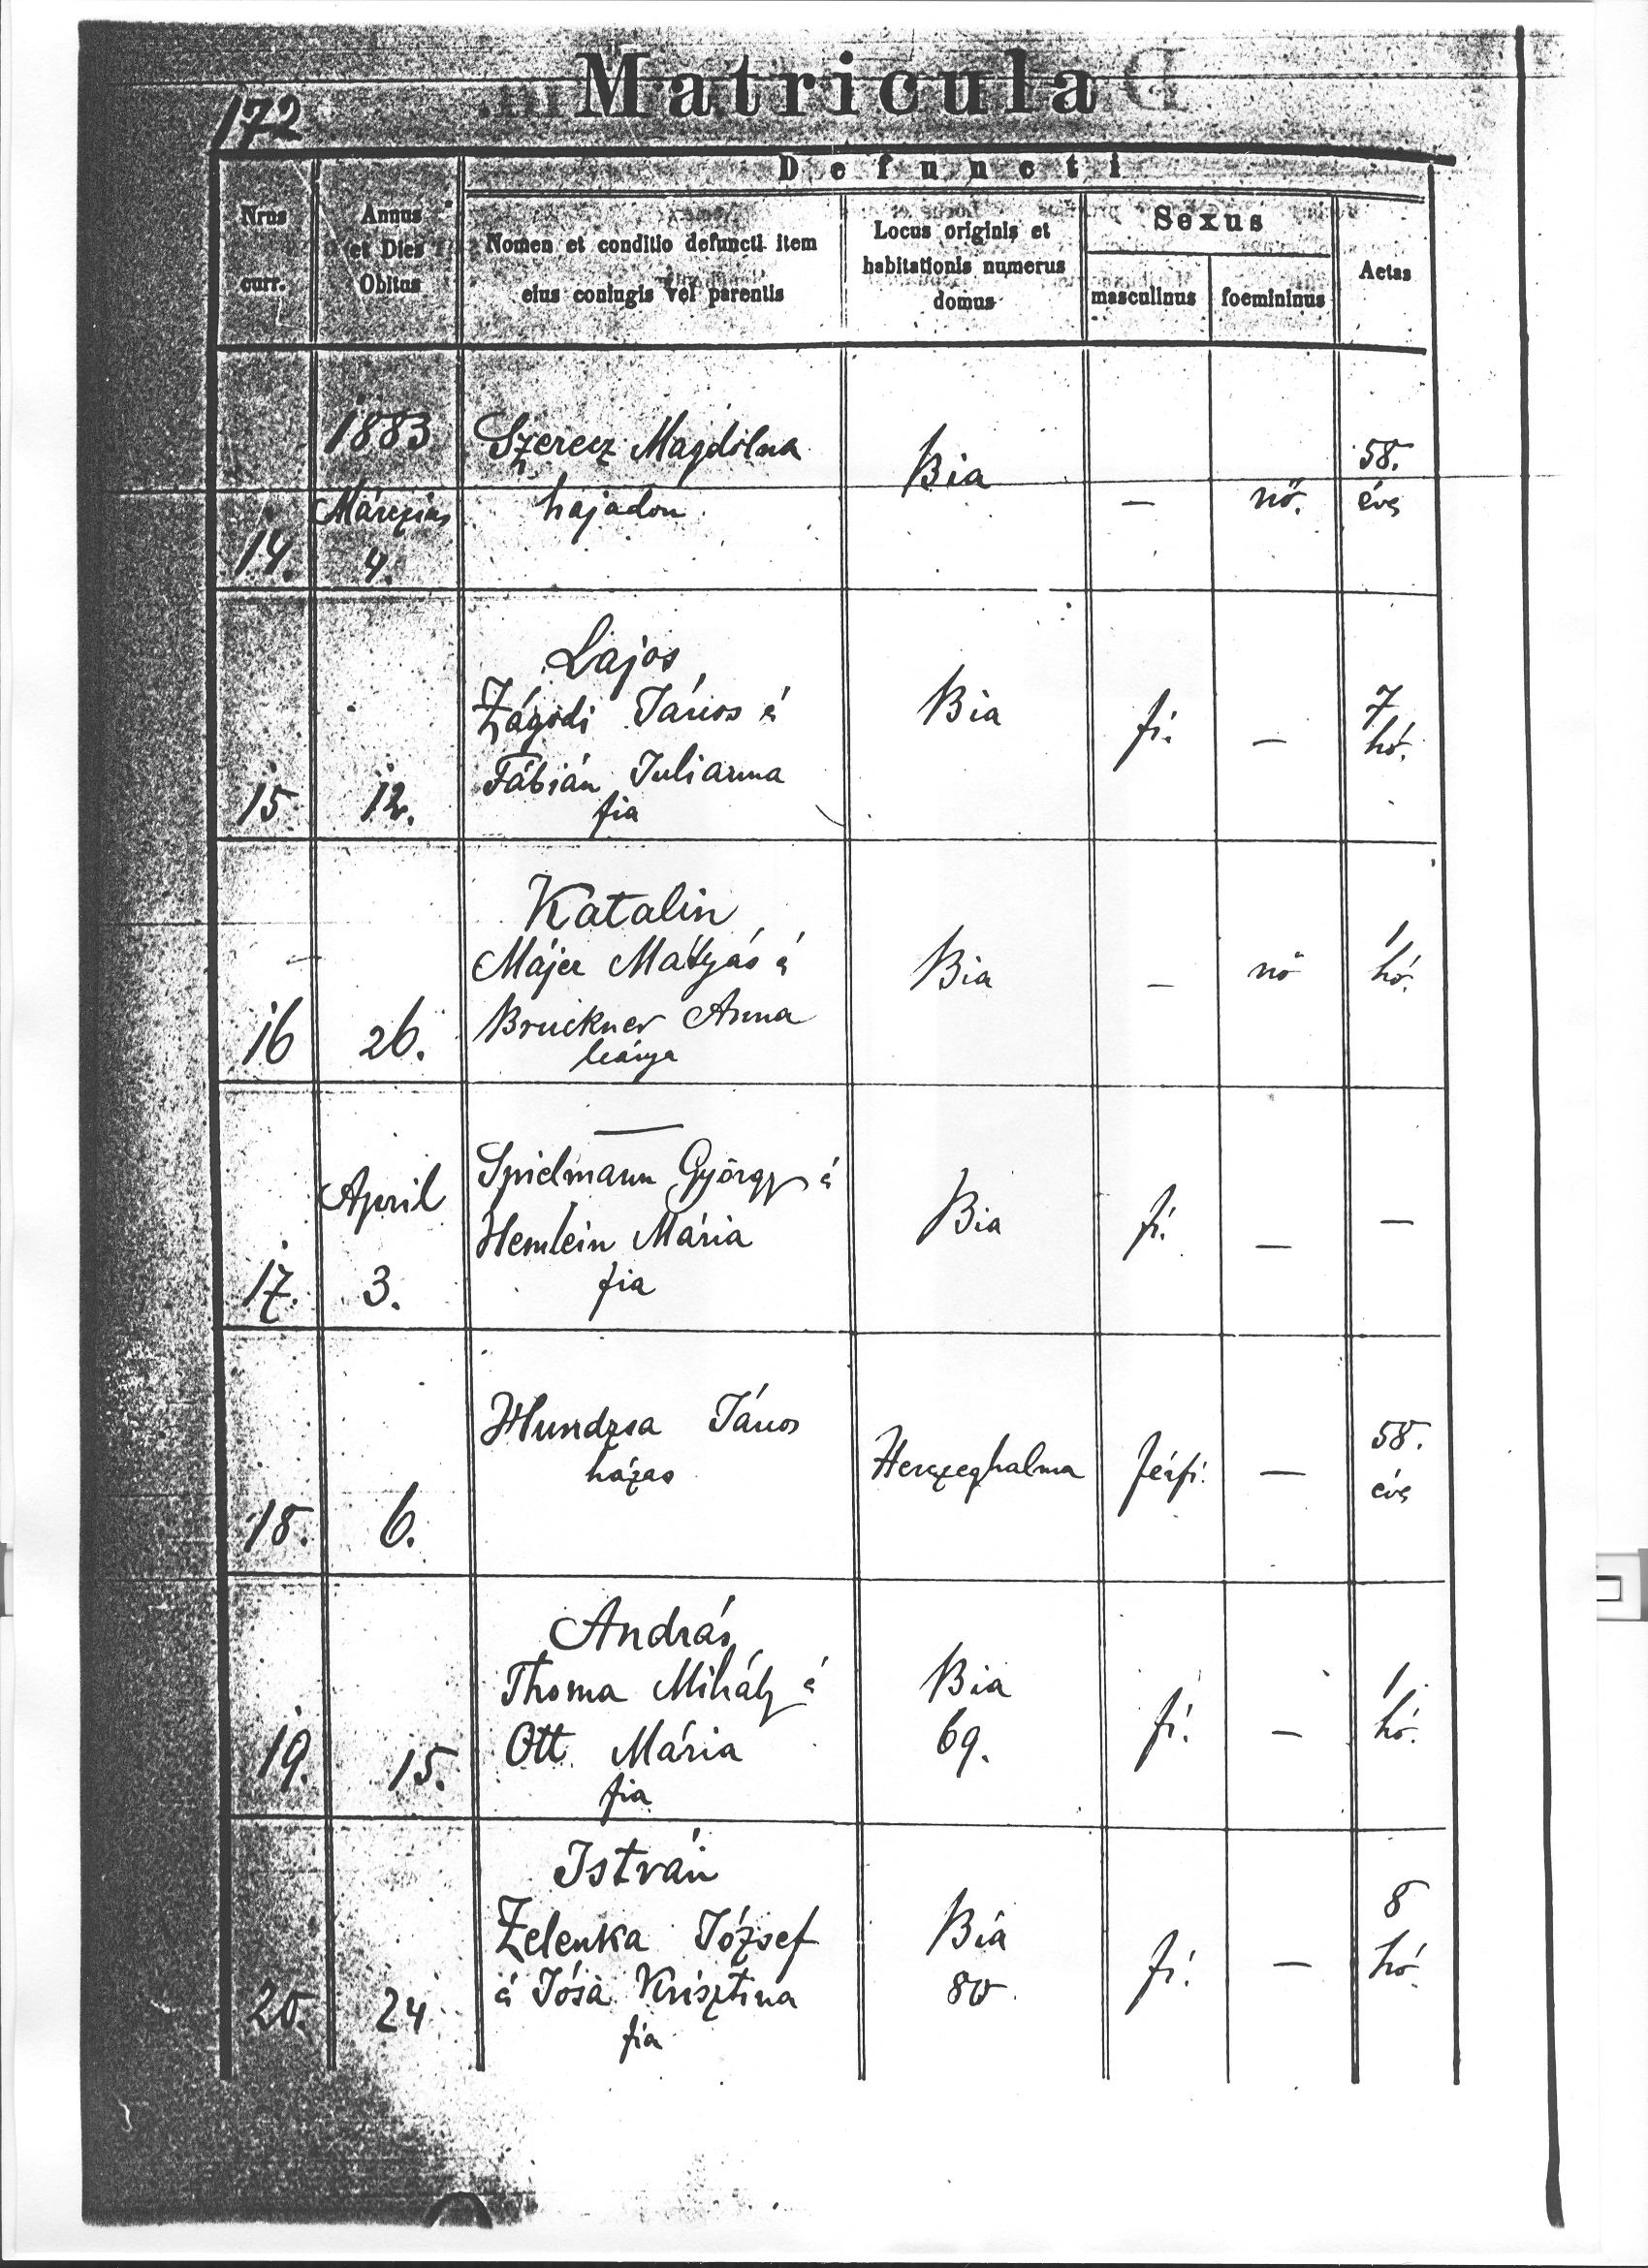 Matricula
172
Defuncti
Nrus
curr.
Annus
et Dies
Obitus
Nomen et conditio defuncti item
eius coniugis vel parentis
Locus originis et
habitationis numerus
domus
Sexus
masculinus
foemininus
Aetas
14.
1883
Márczius
4.
Szerecz Magdolna
hajadon
Bia
—
nő.
58.
éves
15
12.
Lajos
Zágodi János és
Fábián Julianna
fia
Bia
fi.
—
7
hó.
16
26.
Katalin
Májer Mátyás és
Bruckner Anna
leánya
Bia
—
nő
1
hó.
17.
April
3.
—
Spielmann György és
Hemlein Mária
fia
Bia
fi.
—
—
18.
6.
Hundzsa János
házas
Herczeghalma
férfi.
—
58.
éves
19.
15.
András
Thoma Mihály és
Ott Mária
fia
Bia
69.
fi.
—
1
hó.
20.
24
István
Zelenka József
és Jósa Krisztina
fia
Bia
80.
fi.
—
8
hó.